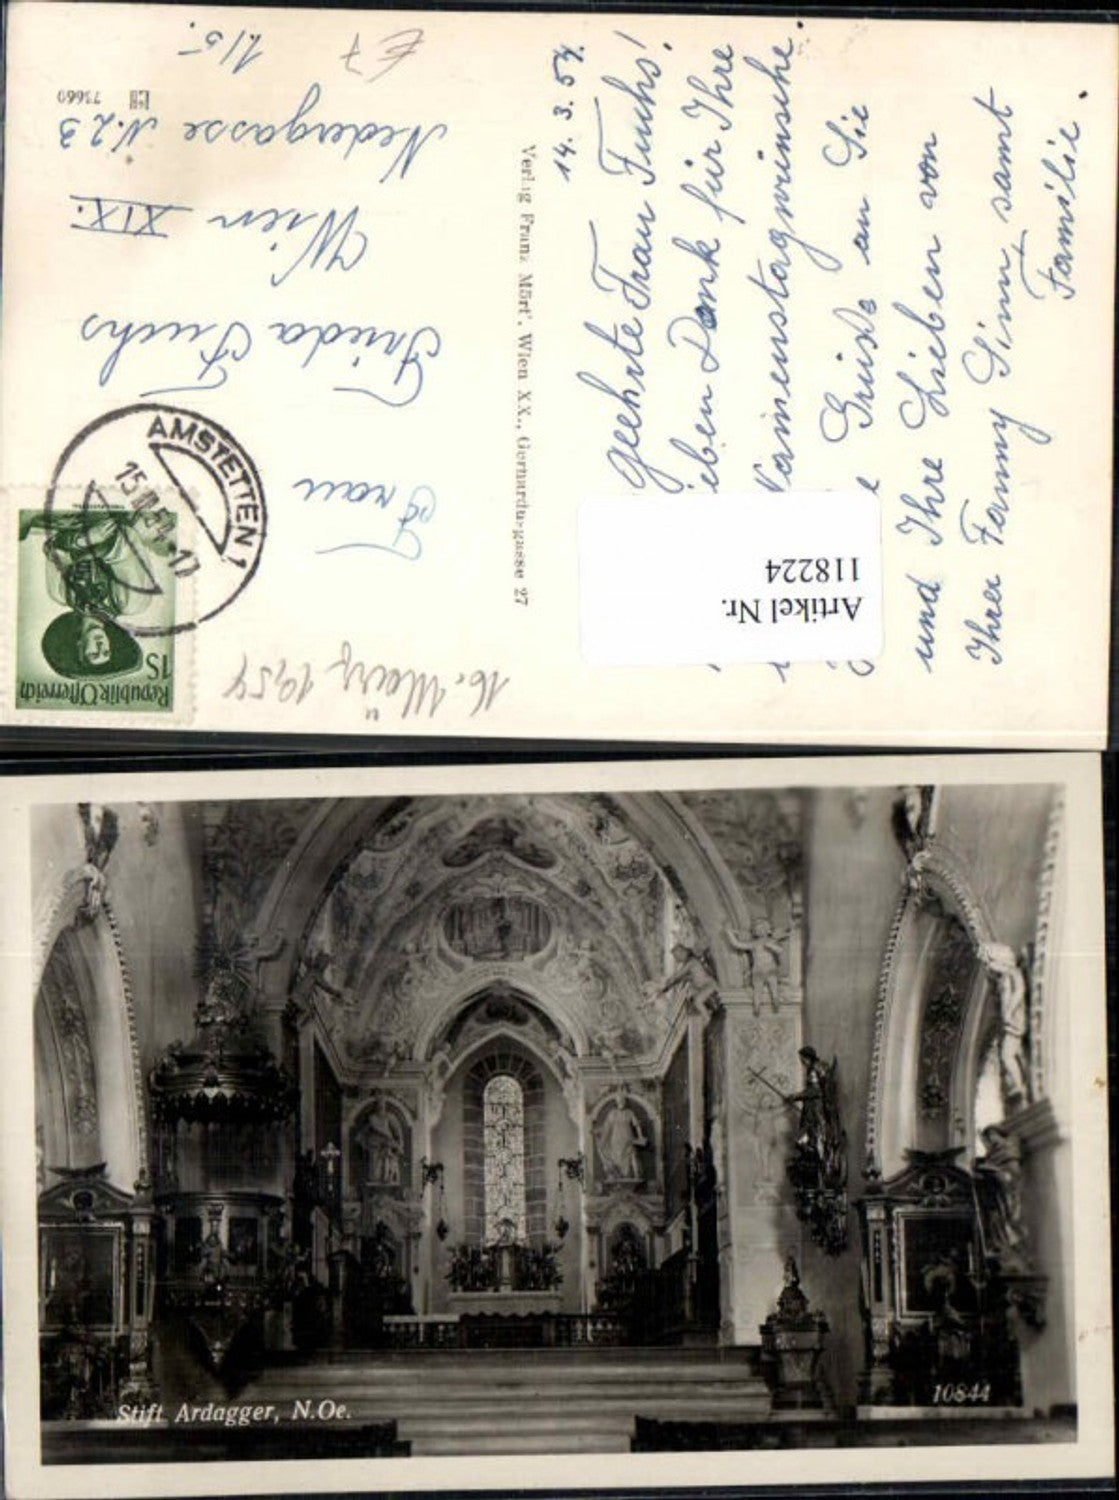 14. 3. 54.
Geehrte Frau Fuchs!
ieben Dank für Ihre
Namenstagwünsche.
e Grüße an Sie
und Ihre Lieben von
Ihrer Fanny Sinn samt
Familie.
Artikel Nr.
118224
Verlag Franz Mört', Wien XX., Gerhardusgasse 27
16. März 1954
Republik Österreich
1S
AMSTETTEN 1
15.III.54-17
Frau
Frieda Fuchs
Wien XIX.
Nedergasse N. 23
1/5.
E 7
73660
Stift Ardagger, N.Oe.
10844